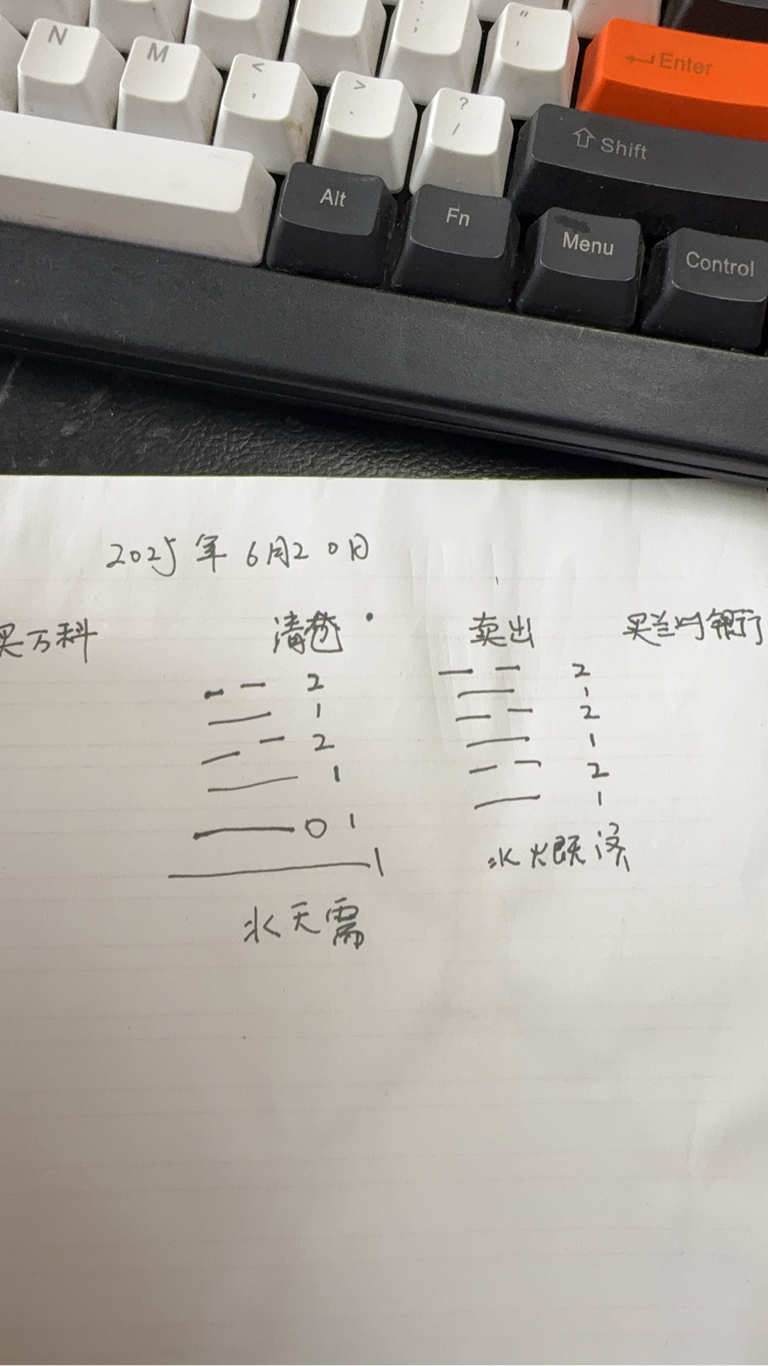 N M < , > . ? / : ; " ' ← Enter
⇧ Shift
Alt Fn Menu Control
2025年6月20日
买万科 清卷 卖出 买兰州银行
2 2
1 1
2 2
1 1
0 1 2
1 1
水天需 水火既济